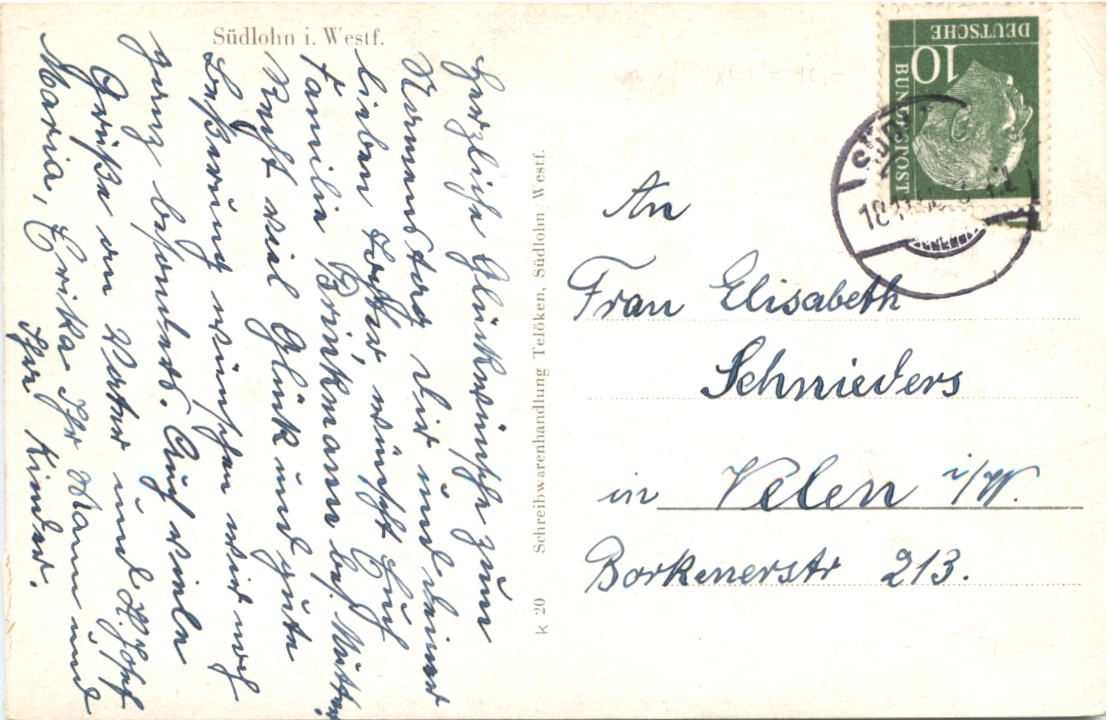 Südlohn i. Westf.
Herzliche Glückwünsche zum
Namenstag Dir und deiner
lieben wünscht Euch
Familie Brinkmann bes. Mutter,
Recht viel Glück und gute
Beßerung wünschen wir noch
ganz besonders. Auch viele
Grüße an Vater und
Maria, Erika Ihr Mann und
Ihre Kinder.
Schreibwarenhandlung Telöken, Südlohn/Westf.
K 20
DEUTSCHE
BUNDESPOST
10
An
Frau Elisabeth
Schnieders
in Velen i/W.
Borkenerstr 213.